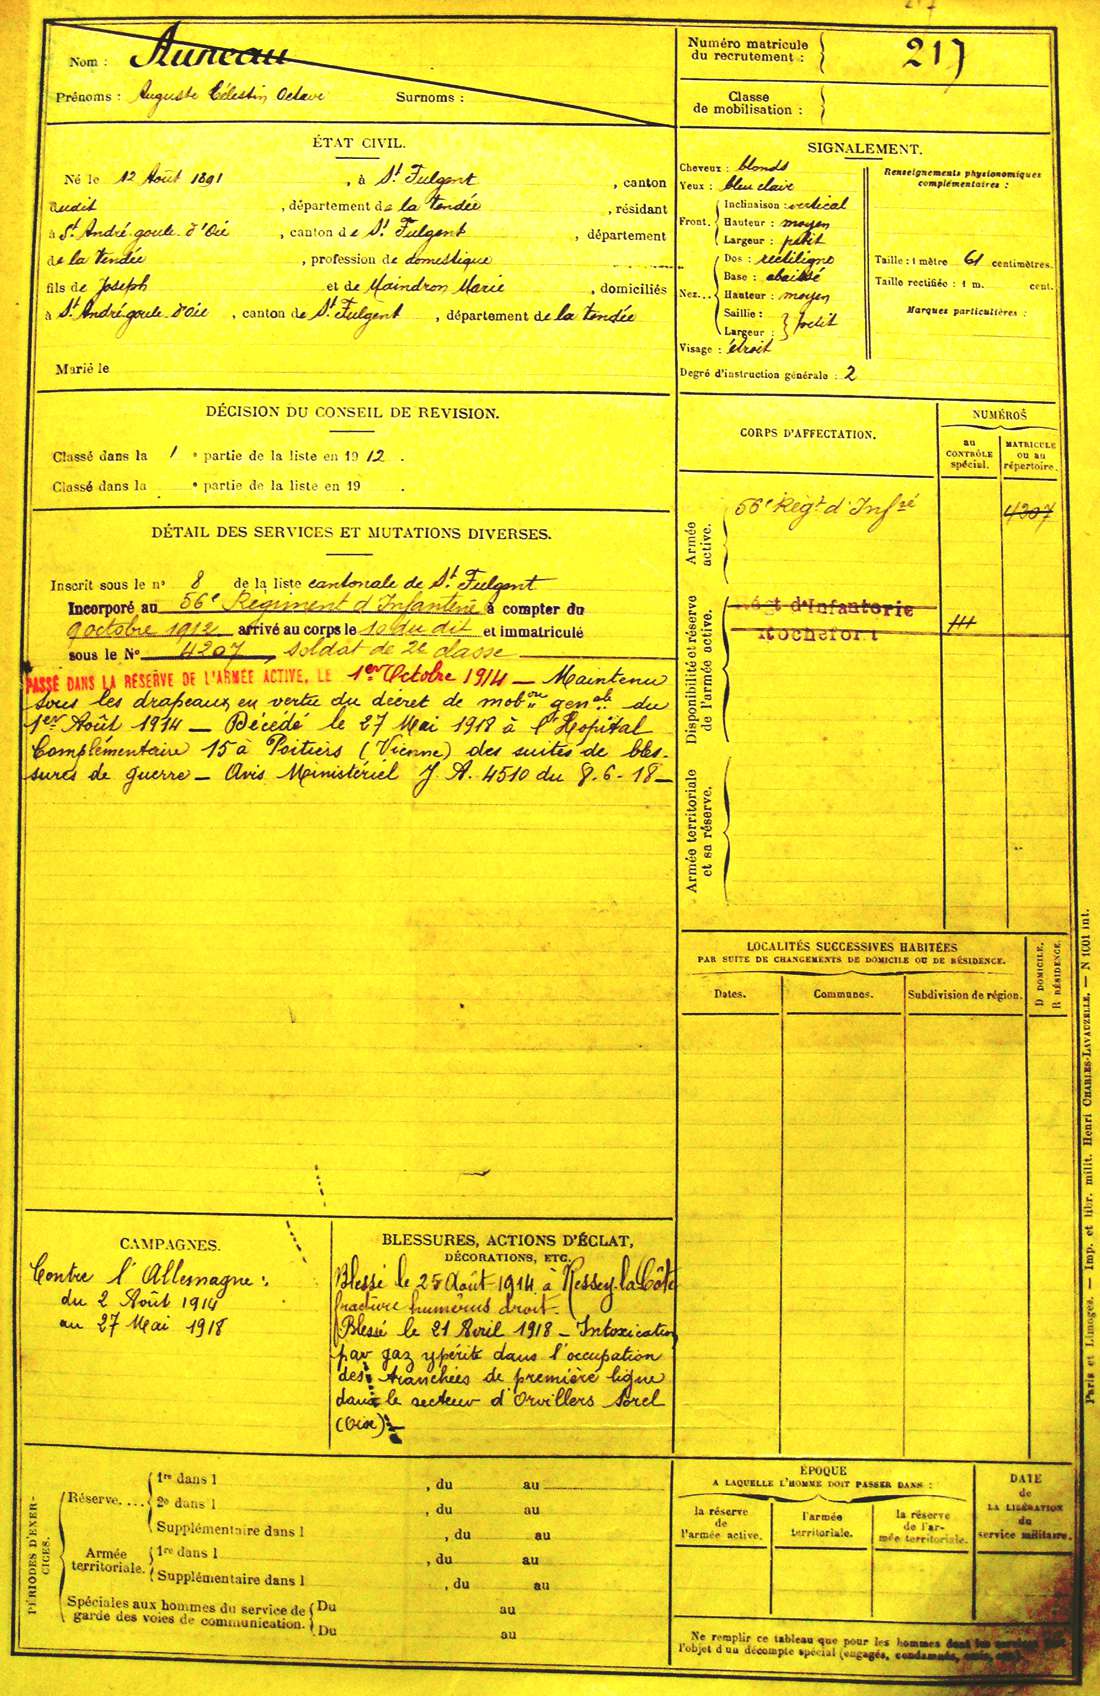 Nom : Auneau
Prénoms : Auguste Célestin Octave Surnoms :
Numéro matricule du recrutement : 217
Classe de mobilisation :
ÉTAT CIVIL.
Né le 12 Août 1891, à St Fulgent, canton
dudit, département de la Vendée, résidant
à St André goule d'Oié, canton de St Fulgent, département
de la Vendée, profession de domestique
fils de Joseph et de Maindron Marie, domiciliés
à St André goule d'Oié, canton de St Fulgent, département de la Vendée
Marié le
SIGNALEMENT.
Cheveux : blonds
Yeux : bleu clair
Front. Inclinaison : vertical
Hauteur : moyen
Largeur : petit
Nez... Dos : rectiligne
Base : abaissé
Hauteur : moyen
Saillie :
Largeur : petit
Visage : étroit
Renseignements physionomiques
complémentaires :
Taille : 1 mètre 61 centimètres.
Taille rectifiée : 1 m. cent.
Marques particulières :
Degré d'instruction générale : 2
DÉCISION DU CONSEIL DE REVISION.
Classé dans la 1 e partie de la liste en 1912.
Classé dans la e partie de la liste en 19 .
DÉTAIL DES SERVICES ET MUTATIONS DIVERSES.
Inscrit sous le no 8 de la liste cantonale de St Fulgent
Incorporé au 56e Régiment d'Infanterie à compter du
9 octobre 1912 arrivé au corps le 10 du dit et immatriculé
sous le No 4207, soldat de 2e classe
PASSÉ DANS LA RÉSERVE DE L'ARMÉE ACTIVE, LE 1er Octobre 1914 — Maintenu
sous les drapeaux en vertu du décret de mobon génale du
1er Août 1914 — Décédé le 27 Mai 1918 à l'Hopital
Complémentaire 15 à Poitiers (Vienne) des suites de bles-
sures de guerre — Avis Ministériel J A. 4510 du 8-6-18 —
CORPS D'AFFECTATION.
NUMÉROS
au
CONTRÔLE
spécial.
MATRICULE
ou au
répertoire.
Armée
active.
56e Régt d'Infrie 4207
Disponibilité et réserve
de l'armée active.
Régt d'Infanterie
Rochefort
Armée territoriale
et sa réserve.
LOCALITÉS SUCCESSIVES HABITÉES
PAR SUITE DE CHANGEMENTS DE DOMICILE OU DE RÉSIDENCE.
Dates. Communes. Subdivision de région.
D DOMICILE.
R RÉSIDENCE.
CAMPAGNES.
Contre l'Allemagne :
du 2 Août 1914
au 27 Mai 1918
BLESSURES, ACTIONS D'ÉCLAT,
DÉCORATIONS, ETC.
Blessé le 25 Août 1914 à
fracture humérus droit.
Blessé le 21 Avril 1918 — Intoxication
par gaz ypérite dans l'occupation
des tranchées de première ligne
dans le secteur d'Orvillers Sorel
(Oise) —
PÉRIODES D'EXER-
CICES.
Réserve.... 1re dans l , du au
2e dans l , du au
Supplémentaire dans l , du au
Armée
territoriale. 1re dans l , du au
Supplémentaire dans l , du au
Spéciales aux hommes du service de
garde des voies de communication. Du au
Du au
ÉPOQUE
A LAQUELLE L'HOMME DOIT PASSER DANS :
la réserve
de
l'armée active.
l'armée
territoriale.
la réserve
de l'ar-
mée territoriale.
DATE
de
LA LIBÉRATION
du
service militaire.
Ne remplir ce tableau que pour les hommes dont les services
l'objet d'un décompte spécial (engagés, condamnés,
Paris et Limoges. — Imp. et libr. milit. Henri CHARLES-LAVAUZELLE. — N 1001 int.